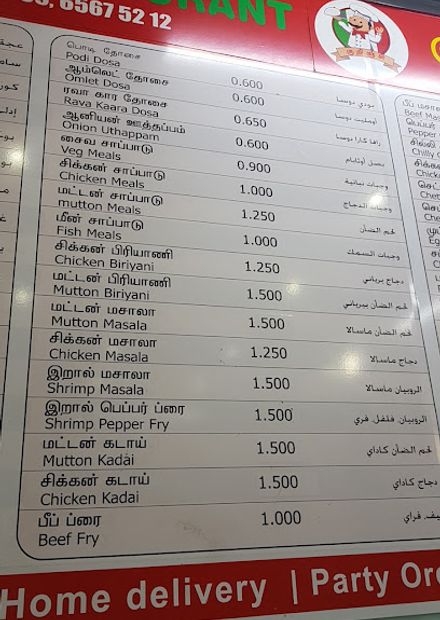 RANT
6567 52 12
பொடி தோசை
Podi Dosa 0.600 بودي دوسا
ஆம்லெட் தோசை
Omlet Dosa 0.600 أومليت دوسا
ரவா கார தோசை
Rava Kaara Dosa 0.650 رافا كارا دوسا
ஆனியன் ஊத்தப்பம்
Onion Uthappam 0.600 بصل أوتابام
சைவ சாப்பாடு
Veg Meals 0.900 وجبات نباتية
சிக்கன் சாப்பாடு
Chicken Meals 1.000 وجبات الدجاج
மட்டன் சாப்பாடு
mutton Meals 1.250 لحم الضأن
மீன் சாப்பாடு
Fish Meals 1.000 وجبات السمك
சிக்கன் பிரியாணி
Chicken Biriyani 1.250 دجاج برياني
மட்டன் பிரியாணி
Mutton Biriyani 1.500 لحم الضأن بيرياني
மட்டன் மசாலா
Mutton Masala 1.500 لحم الضأن ماسالا
சிக்கன் மசாலா
Chicken Masala 1.250 دجاج ماسالا
இறால் மசாலா
Shrimp Masala 1.500 الروبيان ماسالا
இறால் பெப்பர் ப்ரை
Shrimp Pepper Fry 1.500 الروبيان فلفل فري
மட்டன் கடாய்
Mutton Kadai 1.500 لحم الضأن كاداي
சிக்கன் கடாய்
Chicken Kadai 1.500 دجاج كاداي
பீப் ப்ரை
Beef Fry 1.000 فراي
Home delivery | Party Ord